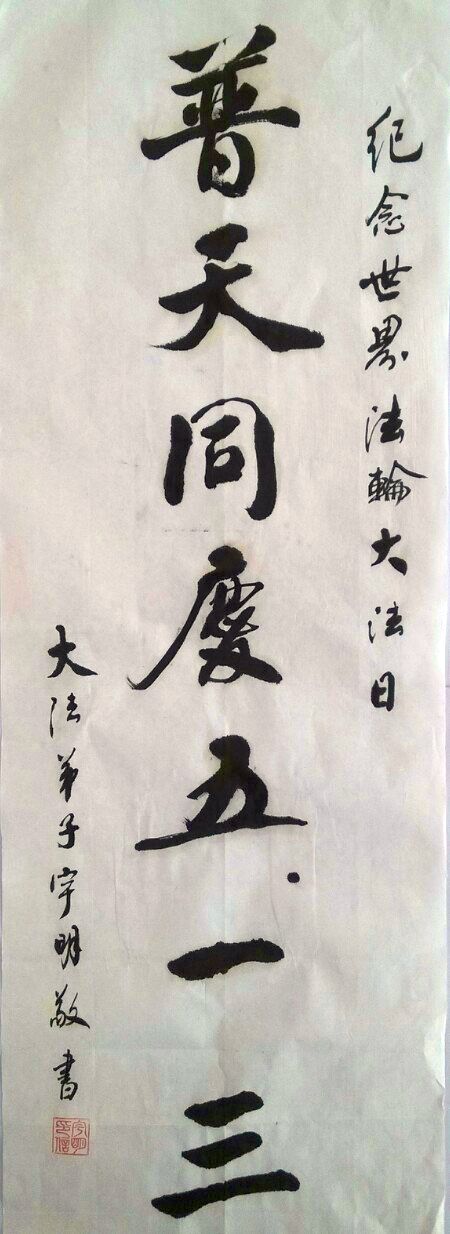 紀念世界法輪大法日
普天同慶五.一三
大法弟子宇明敬書